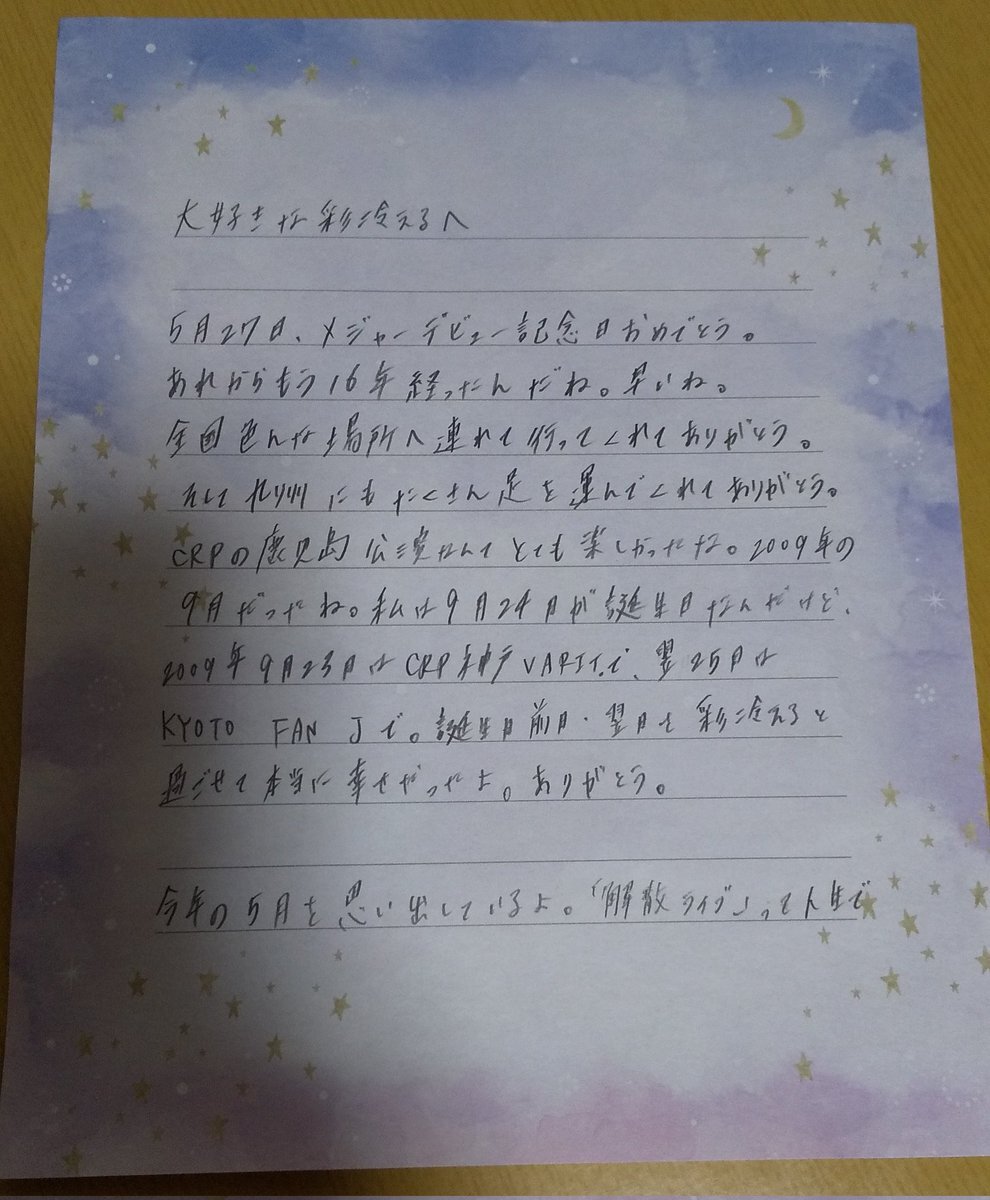 大好きな彩冷えるへ
5月27日、メジャーデビュー記念日おめでとう。
あれからもう16年経ったんだね。早いね。
全国色んな場所へ連れて行ってくれてありがとう。
そして九州にもたくさん足を運んでくれてありがとう。
CRPの鹿児島公演なんてとても楽しかったな。2009年の
9月だったね。私は9月24日が誕生日なんだけど、
2009年9月23日はCRP神戸VARIT.で、翌25日は
KYOTO FAN Jで。誕生日前日・翌日を彩冷えると
過ごせて本当に幸せだったよ。ありがとう。
今年の5月を思い出しているよ。「解散ライブ」って人生で